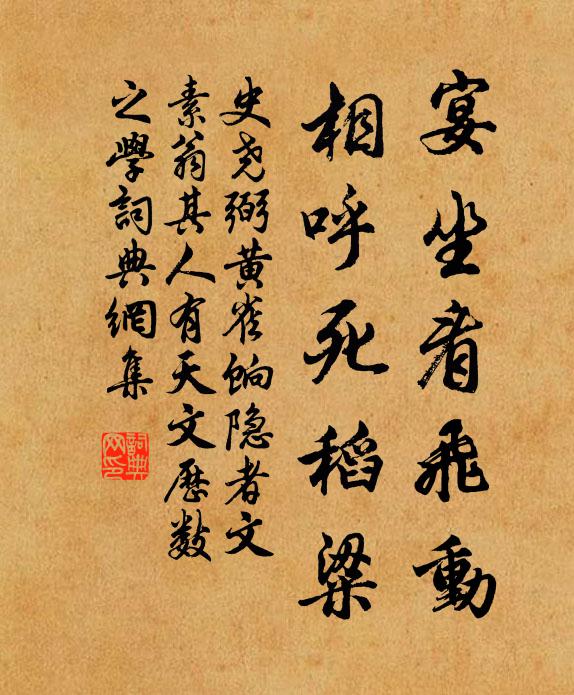 宴坐看飛動
相呼死稻粱
史尧弼黄雀餉隐者文
素翁其人有天文歷數
之學詞典網集
詞典
网印